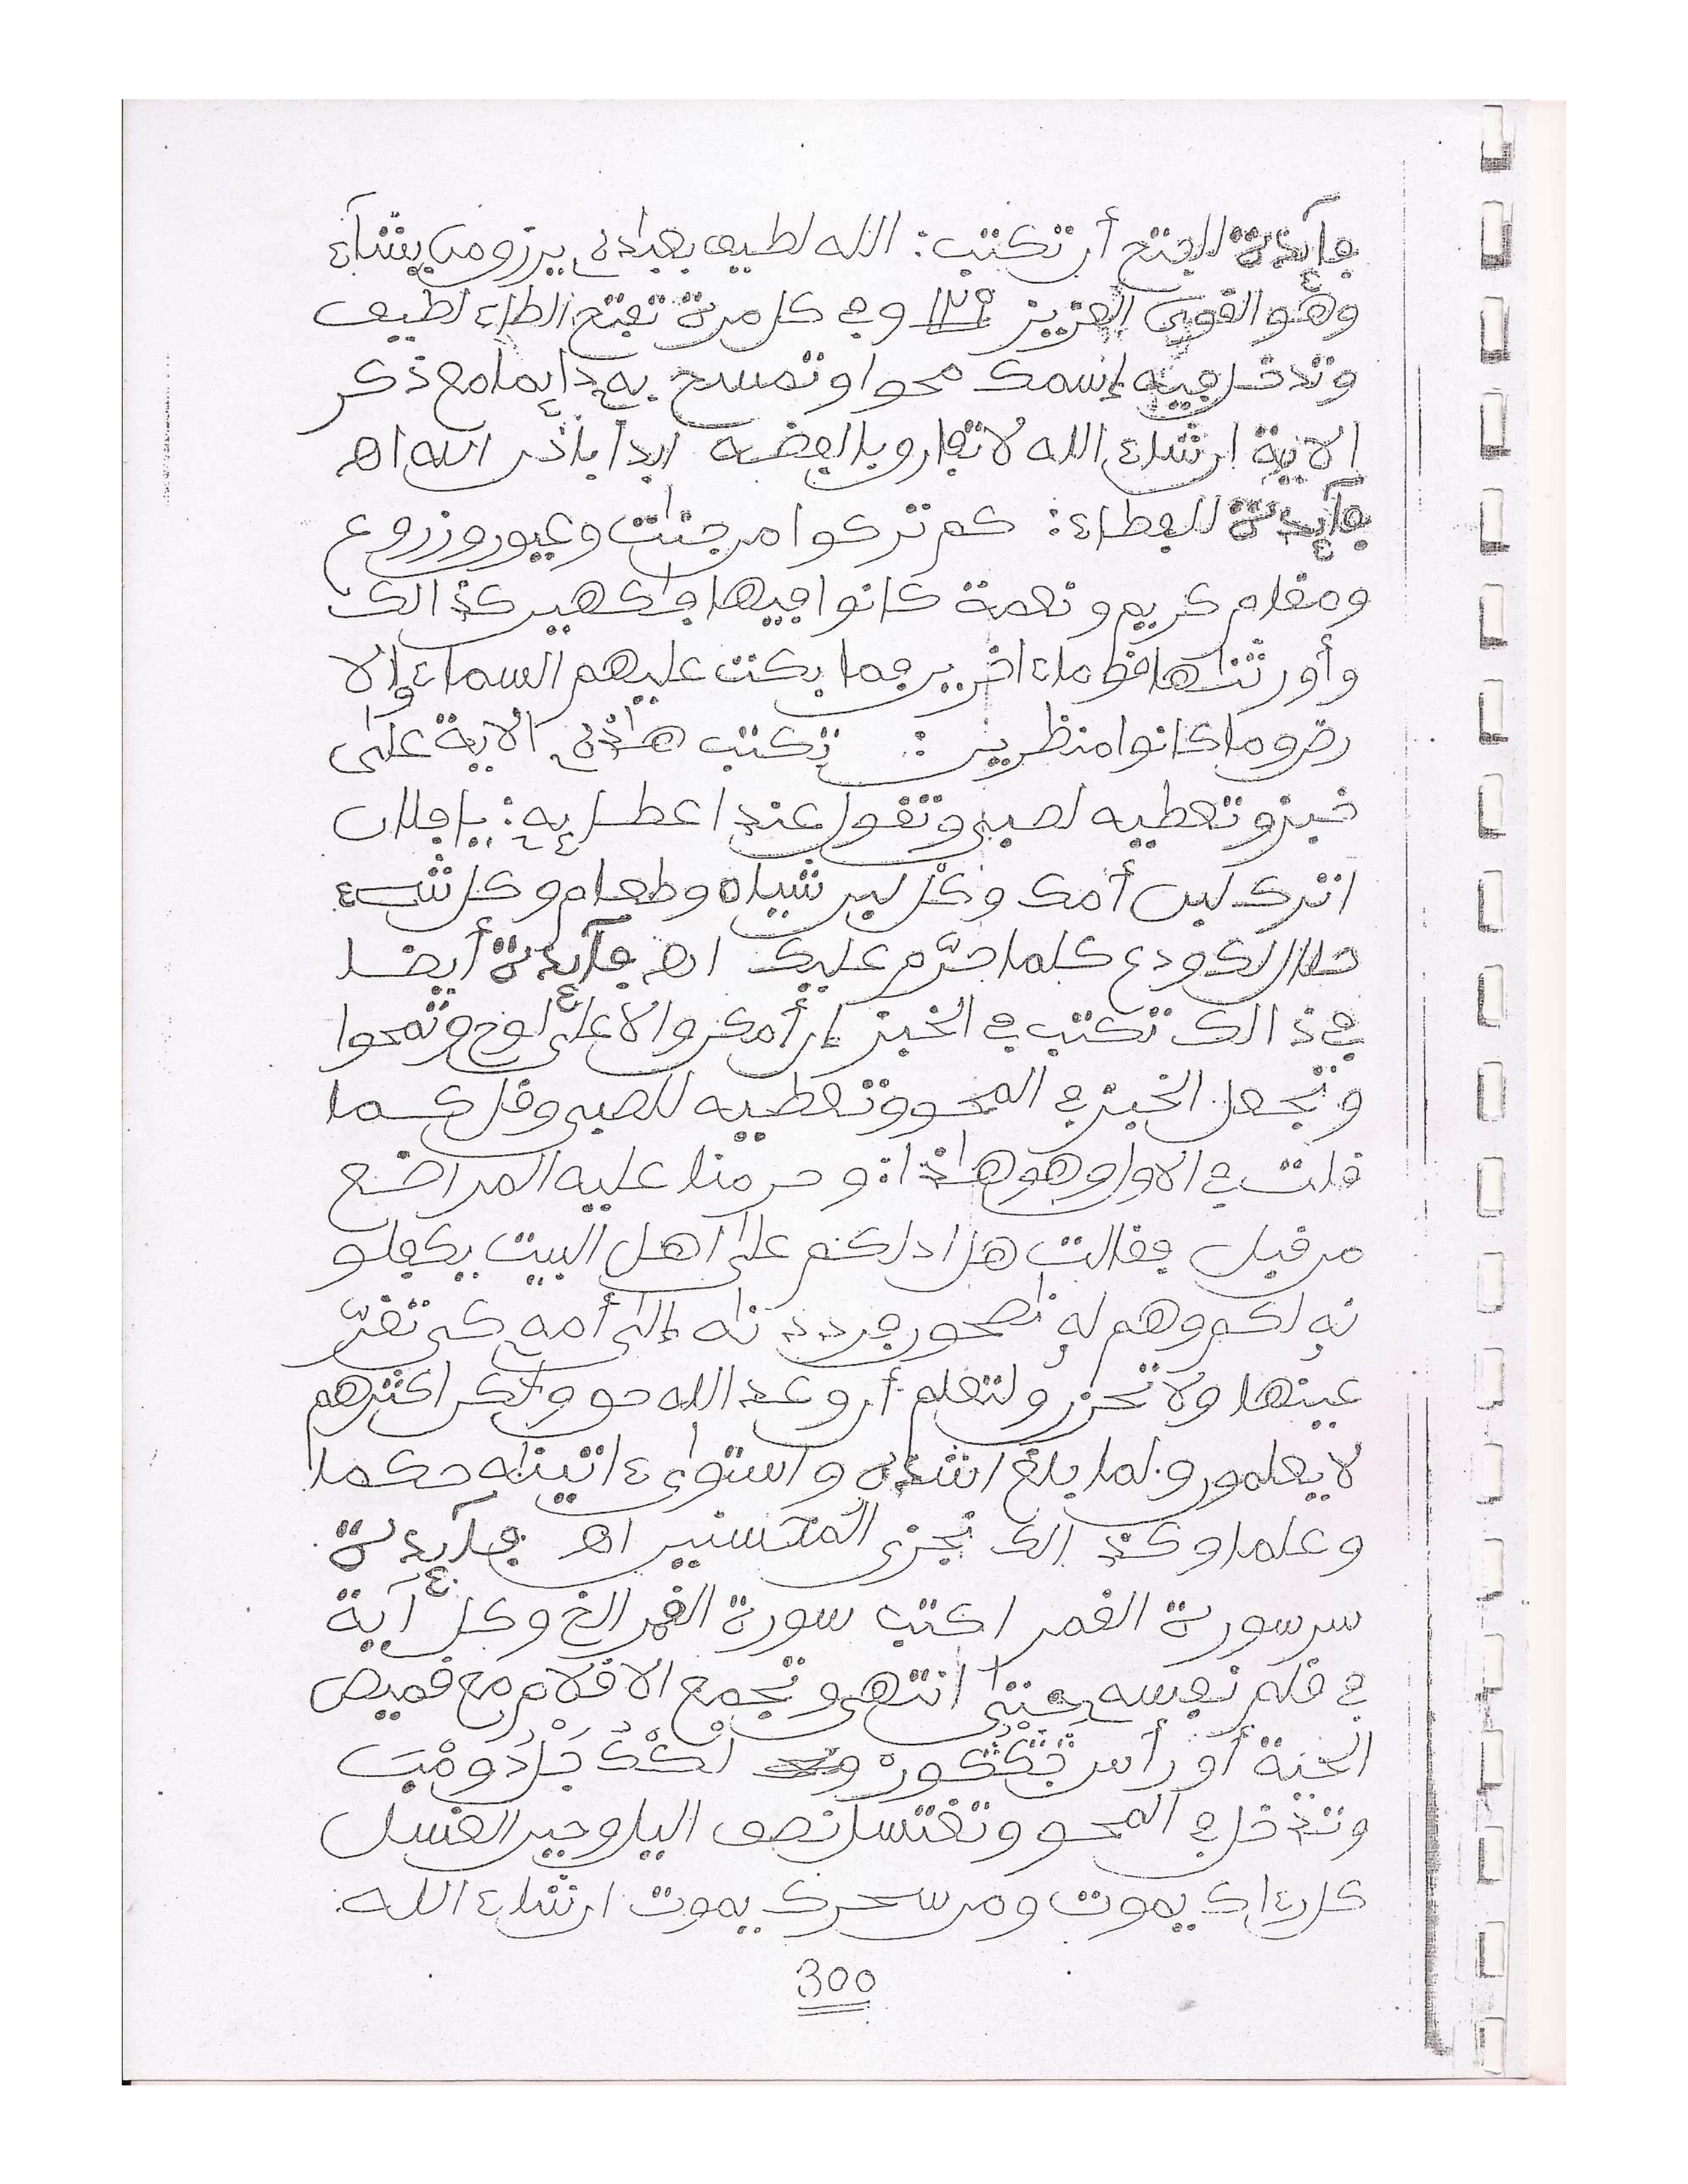 فآئدة للفتح أن تكتب: الله لطيف بعباده يرزق من يشآء
وهو القوي العزيز ١٢٩ وفي كل مرة تفتح الطاء لطيف
وتدخل فيه إسمك محوا وتمسح به دايما مع ذكر
الاية ان شاء الله لا تفارق بالفضة ابدا باذن الله اه
فآئدة للفطاء: كم تركوا من جنات وعيون وزروع
ومقام كريم ونعمة كانوا فيها فاكهين كذالك
وأورثناها قوما ءاخرين فما بكت عليهم السماء والا
رض وما كانوا منظرين : تكتب هاذه الاية على
خبز وتعطيه لصبي وتقول عند اعطايه: يا فلان
اترك لبن أمك وكل لبن شياه وطعام وكل شيء
حلال لك ودع كلما حرّم عليك اه فآئدة أيضا
في ذالك تكتب في الخبز إن أمكن والا على لوح وتمحوا
وتجعل الخبز في المحو وتعطيه للصبي وقل كما
قلت في الاول وهو هاذا: وحرمنا عليه المراضع
من قبل فقالت هل ادلكم على اهل البيت يكفلو
نه لكم وهم له ناصحون فرددناه إلى أمه كي تقرّ
عينها ولا تحزن ولتعلم أن وعد الله حق ولكن اكثرهم
لا يعلمون ولما بلغ اشده واستوى ءاتيناه حكما
وعلما وكذالك نجزي المحسنين اه فآئدة
سر سورة القمر اكتب سورة القمر الخ وكل آية
في قلم نفسه حتى انتهى وتجمع الاقلام مع قميص
الحية أو رأس
وتدخل في المحو وتغتسل نصف اليل وحين الغسل
كل داك يموت ومن سحرك يموت ان شاء الله
300